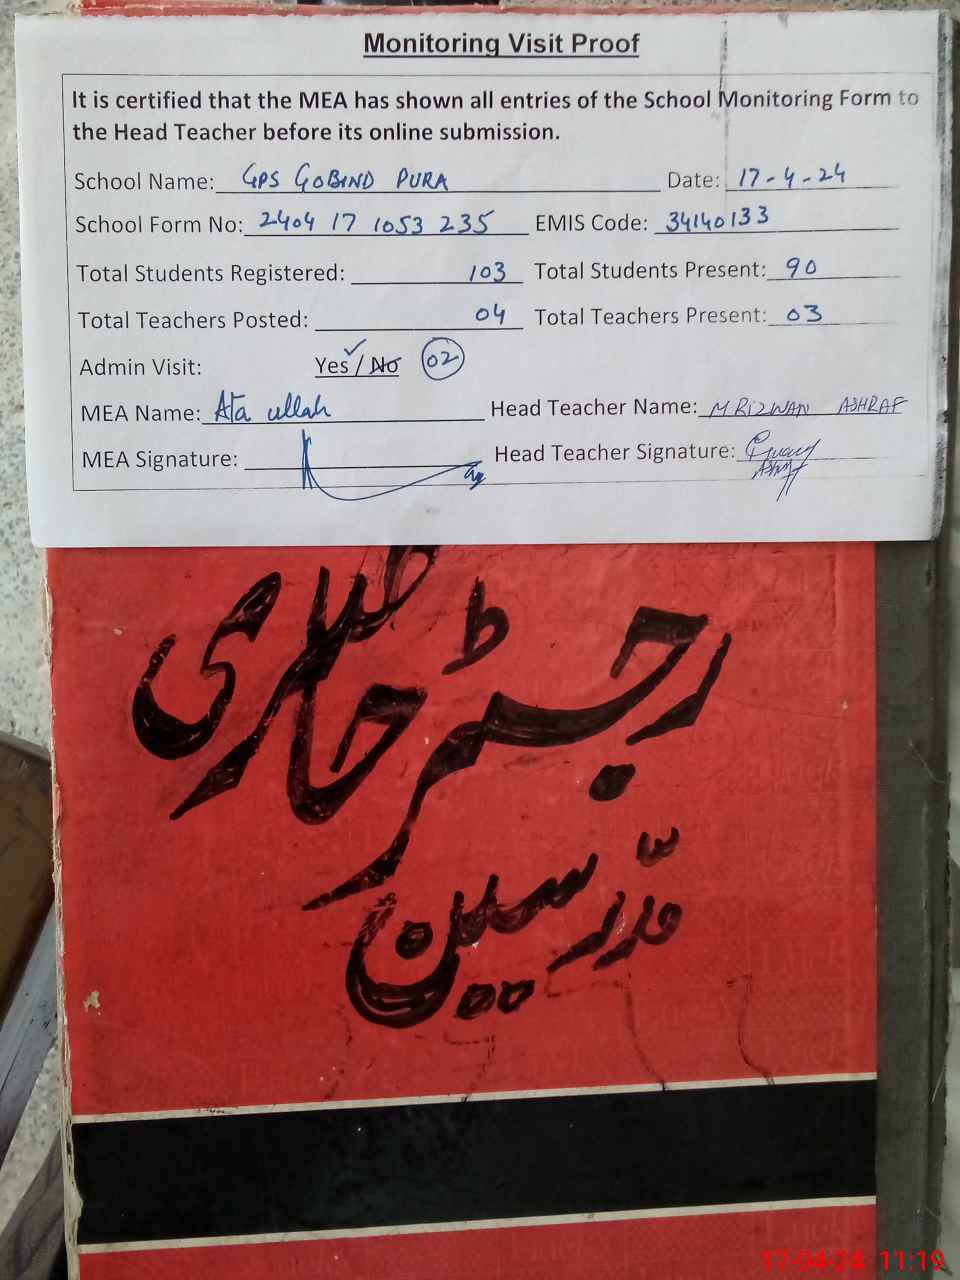 Monitoring Visit Proof
It is certified that the MEA has shown all entries of the School Monitoring Form to
the Head Teacher before its online submission.
School Name: GPS GOBIND PURA Date: 17-4-24
School Form No: 2404 17 1053 235 EMIS Code: 34140133
Total Students Registered: 103 Total Students Present: 90
Total Teachers Posted: 04 Total Teachers Present: 03
Admin Visit: Yes / No 02
MEA Name: Ata ullah Head Teacher Name: M RIZWAN ASHRAF
MEA Signature: Head Teacher Signature:
رجسٹر حاضری
مدرسین
17-04-24 11:19